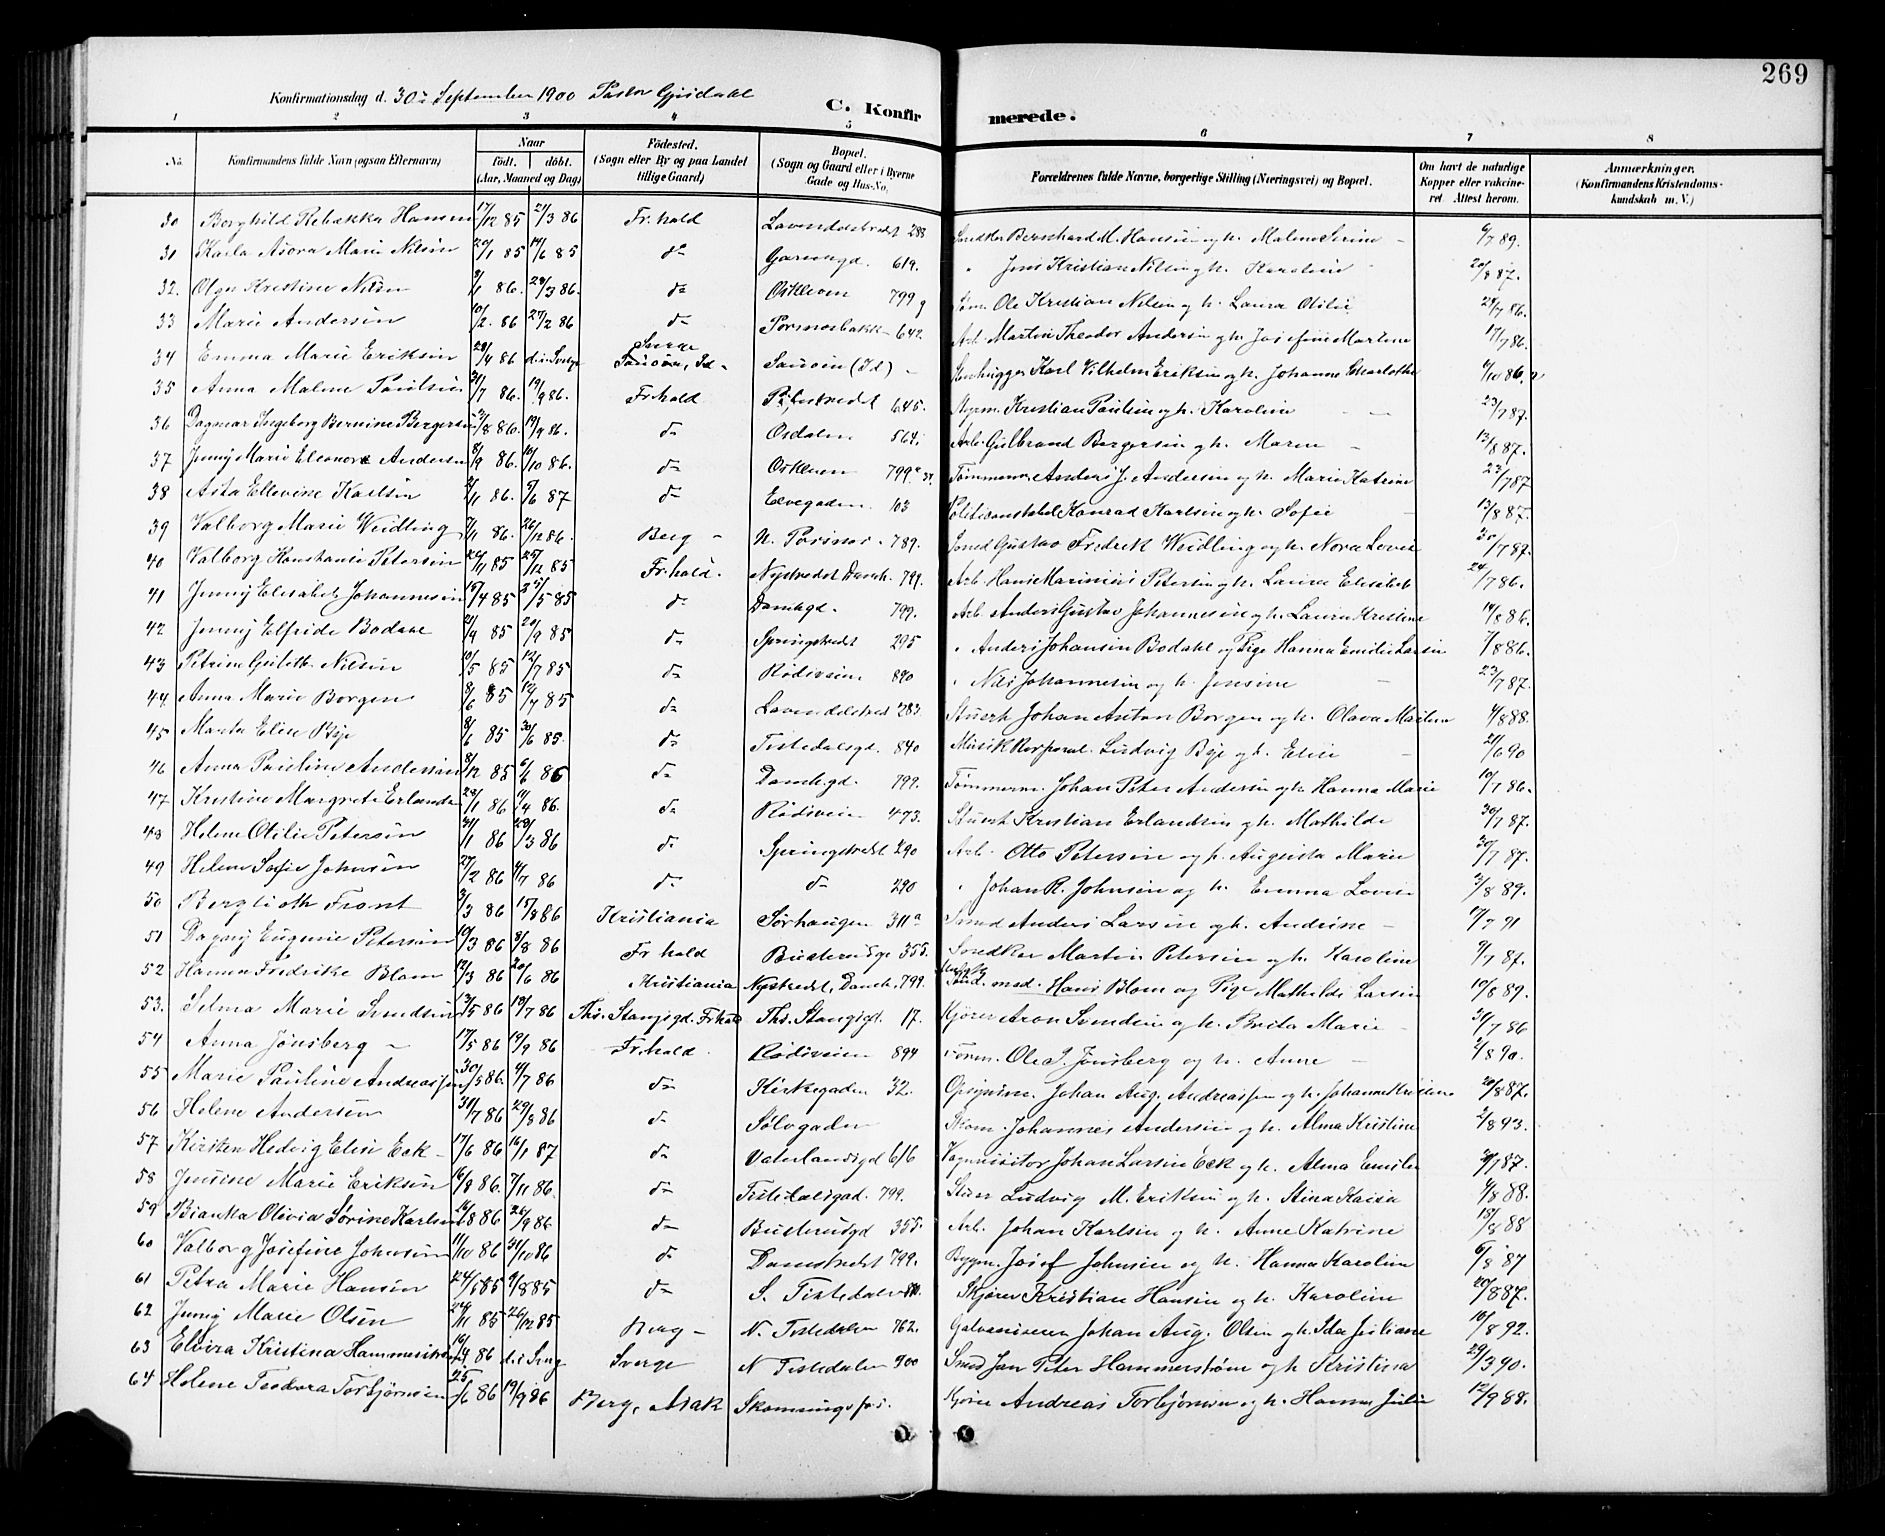 269
Konfirmationsdag d. 30te September 1900 Pastor Gjisdahl
C. Konfirmerede.
1 2 3 4 5 6 7 8
No. Konfirmandens fulde Navn (ogsaa Efternavn) Naar födt. döbt. (Aar, Maaned og Dag) Födested. (Sogn eller By og paa Landet tillige Gaard) Bopæl. (Sogn og Gaard eller i Byerne Gade og Hus-No. Forældrenes fulde Navne, borgerlige Stilling (Næringsvei) og Bopæl. Om havt de naturlige Kopper eller vakcineret. Attest herom. Anmærkninger. (Konfirmandens Kristendomskundskab m. V.)
30 Borghild Rebækka Hansen 17/12 85 21/3 86 Fr.hald Lavendelstredet 288 Snedker Bernhard M. Hansen og h. Malene Serine 6/7 89.
31 Karla Asora Marie Nilsen 20/1 85 14/6 85 do Garvergd. 619. " Jens Kristian Nilsen og h. Karoline 20/8 87.
32. Olga Kristine Nilsen 9/1 86. 28/3 86. do Oskleven 799 g Söm. Ole Kristian Nilsen og h. Laura Otilie 24/7 86.
33 Marie Andersen 10/2. 86 27/2 86 do Porsnesbakk. 642. Arb. Martin Theodor Andersen og h. Josefine Martene 17/7 86.
34 Emma Marie Eriksen 28/4 86 do i Sverge Sverge Sauöen, Id Sauöen (Id) Stenhugger Karl Vilhelm Eriksen og h. Johanne Charlotte 4/10 86.
35 Anna Malene Paulsen 21/7 86. 19/9 86. Fr.hald Pilestredet 645. Styrm. Kristian Paulsen og h. Karoline 23/7 87.
36 Dagmar Ingeborg Bernine Bergersen 2/8 86. 19/9 86. do Osdalen 564. Arb. Gulbrand Bergersen og h. Maren 13/8 87.
37 Jenny Marie Eleonore Andersen 8/9 86. 10/10 86. do Oskleven 799 Tömmerm. Anders J. Andersen og h. Marie Katrine 23/7 87
38 Asta Ellevine Karlsen 2/11 86. 5/6 87 do Elvegaden 103 Politikonstabel Konrad Karlsen og h. Sofie 13/8 87.
39 Valborg Marie Weidling 7/11 86. 26/12 86. Berg N. Porsnes. 789. Smed Gustav Fredrik Weidling og h. Nora Lovise 30/7 87.
40 Valborg Konstanse Petersen 22/11 85 25/12 85 Fr.hald. Nystredet Damh. 799. Arb. Hans Marinius Petersen og h. Laura Elisabet 24/7 86.
41 Jenny Elisabet Johannesen 15/4 85 25/5 85 do Damhgd. 799. Arb. Anders Gustav Johannesen og h. Laura Kristine 14/8 86.
42 Jenny Elfride Bodahl 21/9 85 20/9 85 do Springstredet 295 " Anders Johansen Bodahl og Pige Hanna Emilie Larsen 7/8 86.
43 Petrine Gulette Nilsen 10/5 85 12/7 85 do Rödsveien 890 " Nils Johannesen og h. Jensine 23/7 87.
44. Anna Marie Borgen 8/6 85 12/7 85 do Lavendelstred 283. Stuert Johan Anton Borgen og h. Olava Martena 4/8 88.
45 Marta Elise Bye 8/6 85 30/6 85. do Tistedalsgd. 840 Musik Korporal. Ludvig Bye og h. Elise 21/6 90
46 Anna Pauline Andersen 8/12 85 6/4 86 do Damhgd. 799. Tömmerm. Johan Peter Andersen og h. Hanna Marie 10/7 86.
47 Kristine Margrete Erlandsen 23/1 86 11/4 86. do Rödsveien 473. Stuert Kristian Erlandsen og h. Mathilde 30/7 87.
48 Helene Otilie Petersen 31/1 86 28/3 86 do Springstredet 290 Arb. Otto Petersen og h. Augusta Marie 30/7 87.
49 Helene Sofie Johnsen 27/2 86 4/7 86 do do 290 " Johan R. Johnsen og h. Emma Lovise 3/8 89.
50 Berglioth Front 3/3 86 15/8 86 Kristiania Sörhaugen 311a Smed Anders Larsen og h. Andrine 17/7 91
51 Dagny Eugenie Petersen 10/3 86 8/8 86 Fr hald Busterudgd 355. Snedker Martin Petersen og h. Karoline 9/7 87.
52 Hanna Fredrike Blom 12/3 86 20/6 86 Kristiania Nystredet, Damh. 799. Stud. med. Hans Blom og Pige Mathilde Larsen 10/8 89.
53. Selma Marie Svendsen 13/5 86 18/7 86 Ths. Stangsgd. Frhald Ths. Stangsgd. 17. Kjörer Aron Svendsen og h. Brita Marie 31/7 86
54 Anna Jönsberg 17/5 86 19/9 86 Fr.hald. Rödsveien 894 Form. Ole J. Jönsberg og h. Anne 2/8 90.
55 Marie Pauline Andreassen 30/5 86. 4/7 86 do Kirkegaden 32. Opsynsm. Johan Aug. Andreassen og h. Johanne Kristine 20/8 87.
56 Helene Andersen 31/7 86 29/8 86 do Sölvgaden Skom. Johannes Andersen og h. Alma Kristine 2/8 93.
57 Kirsten Hedvig Elise Eck 17/6 86 16/1 87 do Vaterlandsgd 616 Vognvisitör Johan Larsen Eck og h. Alma Emilie 30/7 87.
58 Jensine Marie Eriksen 16/8 86. 7/11 86. do Tistedalsgad. 799. Ludvig M. Eriksen og h. Stina Kaisa 4/8 88.
59 Bianka Olivia Sörine Karlsen 19/8 86 26/9 86 do Busterudgd 355. Arb. Johan Karlsen og h. Anne Katrine 15/8 88
60 Valborg Josefine Johnsen 11/10 86 31/10 86 do Damstredet 799. Bygm. Josef Johnsen og h. Hanna Karoline 6/8 87
61 Petra Marie Hansen 24/6 85 9/8 85 do S. Tistedalen Skjörer Kristian Hansen og h. Karoline 20/8 87.
62 Jenny Marie Olsen 24/11 85 26/12 85 Berg N. Tistedalen 762. Galvaniseur Johan Aug. Olsen og h. Ida Juliane 10/8 92.
63 Elvira Kristina Hammerström 16/4 86 do i Sverg Sverge N Tistedalen 900 Smed Jan Peter Hammerstöm og h. Kristina 29/3 90.
64 Helene Teodora Torbjörnsen 25/6 86 19/9 86 Berg, Asak Skonningsfos. Kjörer Andreas Torbjörnsen og h. Hanna Julie 12/9 88.